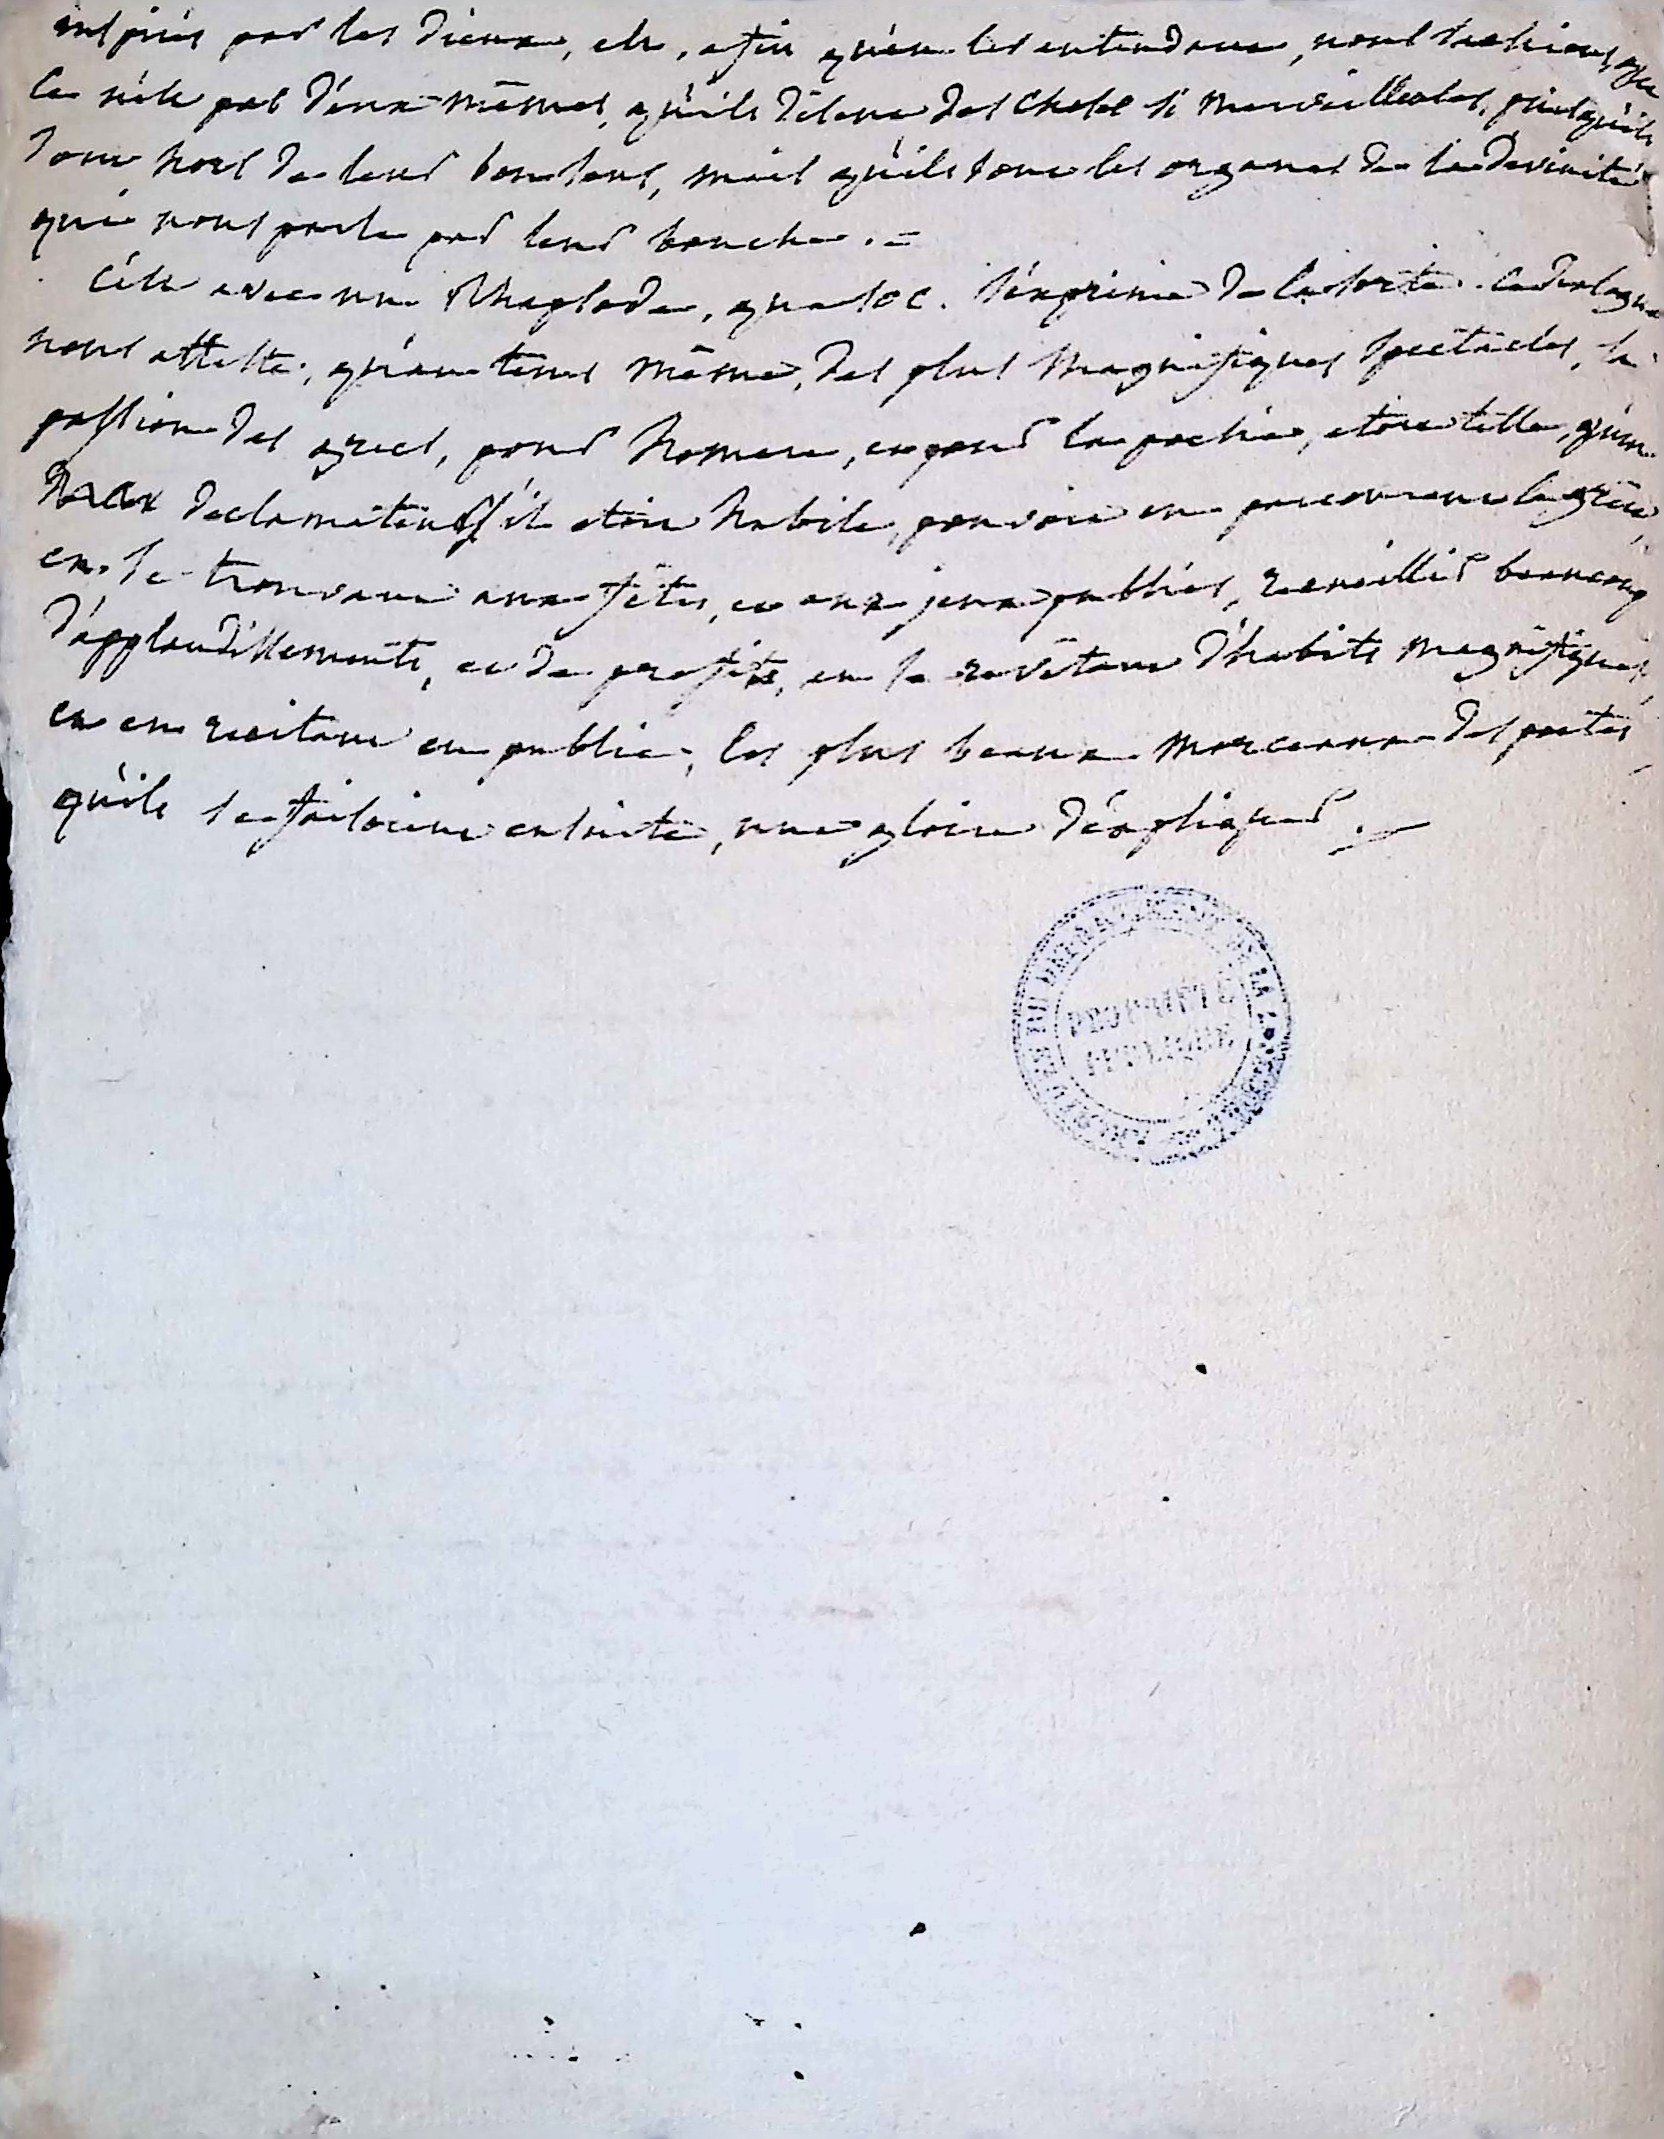 inspirés par les dieux, etc. afin qu'en les entendant, nous sachions que
ce n'est pas d'eux-mêmes, qu'ils disent des choses si merveilleuses, puisqu'ils
sont hors de leur bon sens, mais qu'ils sont les organes de la divinité
qui nous parle par leur bouche. =
C'est avec un Rhapsode, que soc. s'exprime de la sorte. ce dialogue
nous atteste, qu'au tems même, des plus magnifiques spectacles, la
passion des grecs, pour homere, et pour la poesie, etoit telle, qu'un
declamateur s'il etoit habile, pouvoit en parcourant la grèce,
en se trouvant aux fêtes, et aux jeux publics, recueillir beaucoup
d'applaudissements, et de profits, en se revêtant d'habits magnifiques,
et en recitant en public, les plus beaux morceaux des poetes,
qu'ils se faisoient ensuite, une gloire d'expliquer. —
PROPRIÉTÉ
PUBLIQUE